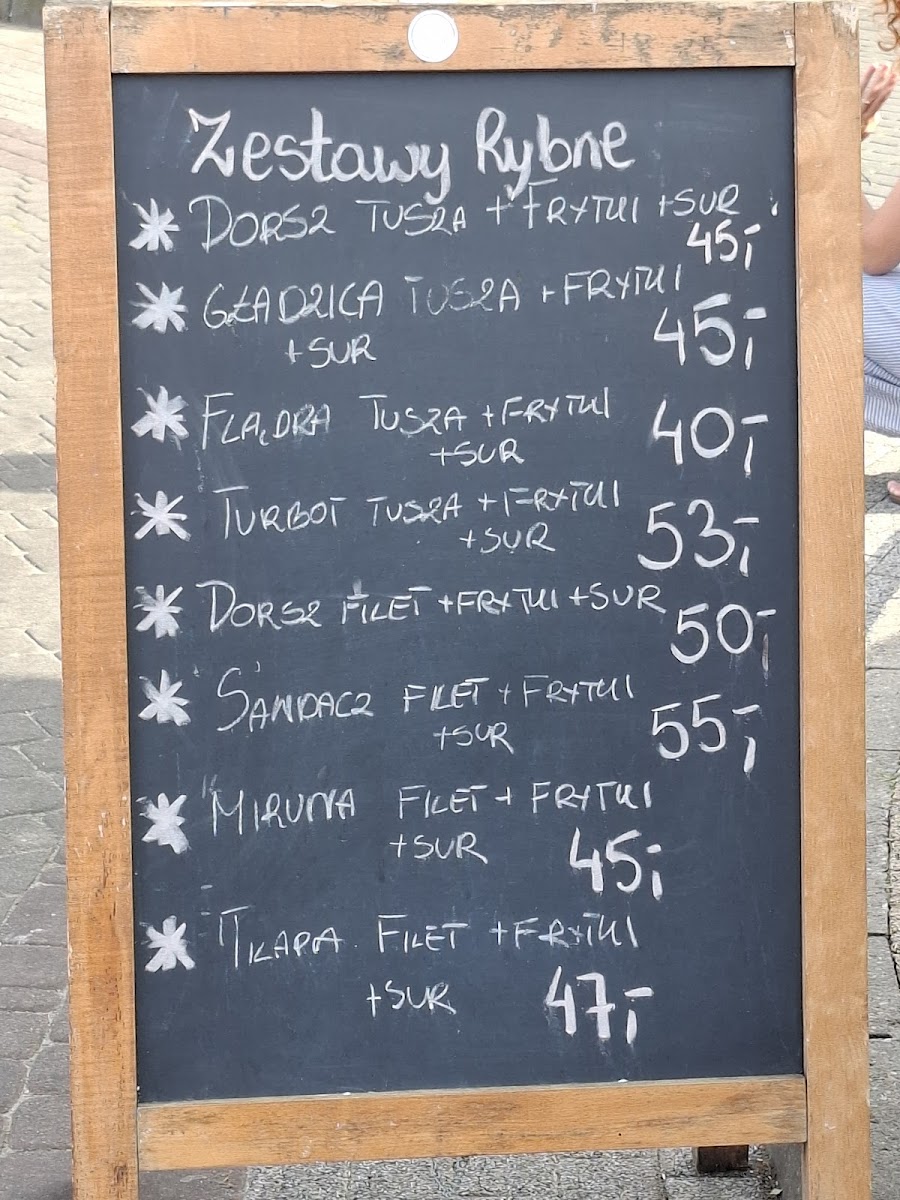 Zestawy Rybne
* DORSZ TUSZA + FRYTKI + SUR
45,-
* GŁADZICA TUSZA + FRYTKI
+ SUR 45,-
* FLĄDRA TUSZA + FRYTKI
+ SUR 40,-
* TURBOT TUSZA + FRYTKI
+ SUR 53,-
* DORSZ FILET + FRYTKI + SUR
50,-
* SANDACZ FILET + FRYTKI
+ SUR 55,-
* MIRUNA FILET + FRYTKI
+ SUR 45,-
* TILAPIA FILET + FRYTKI
+ SUR 47,-